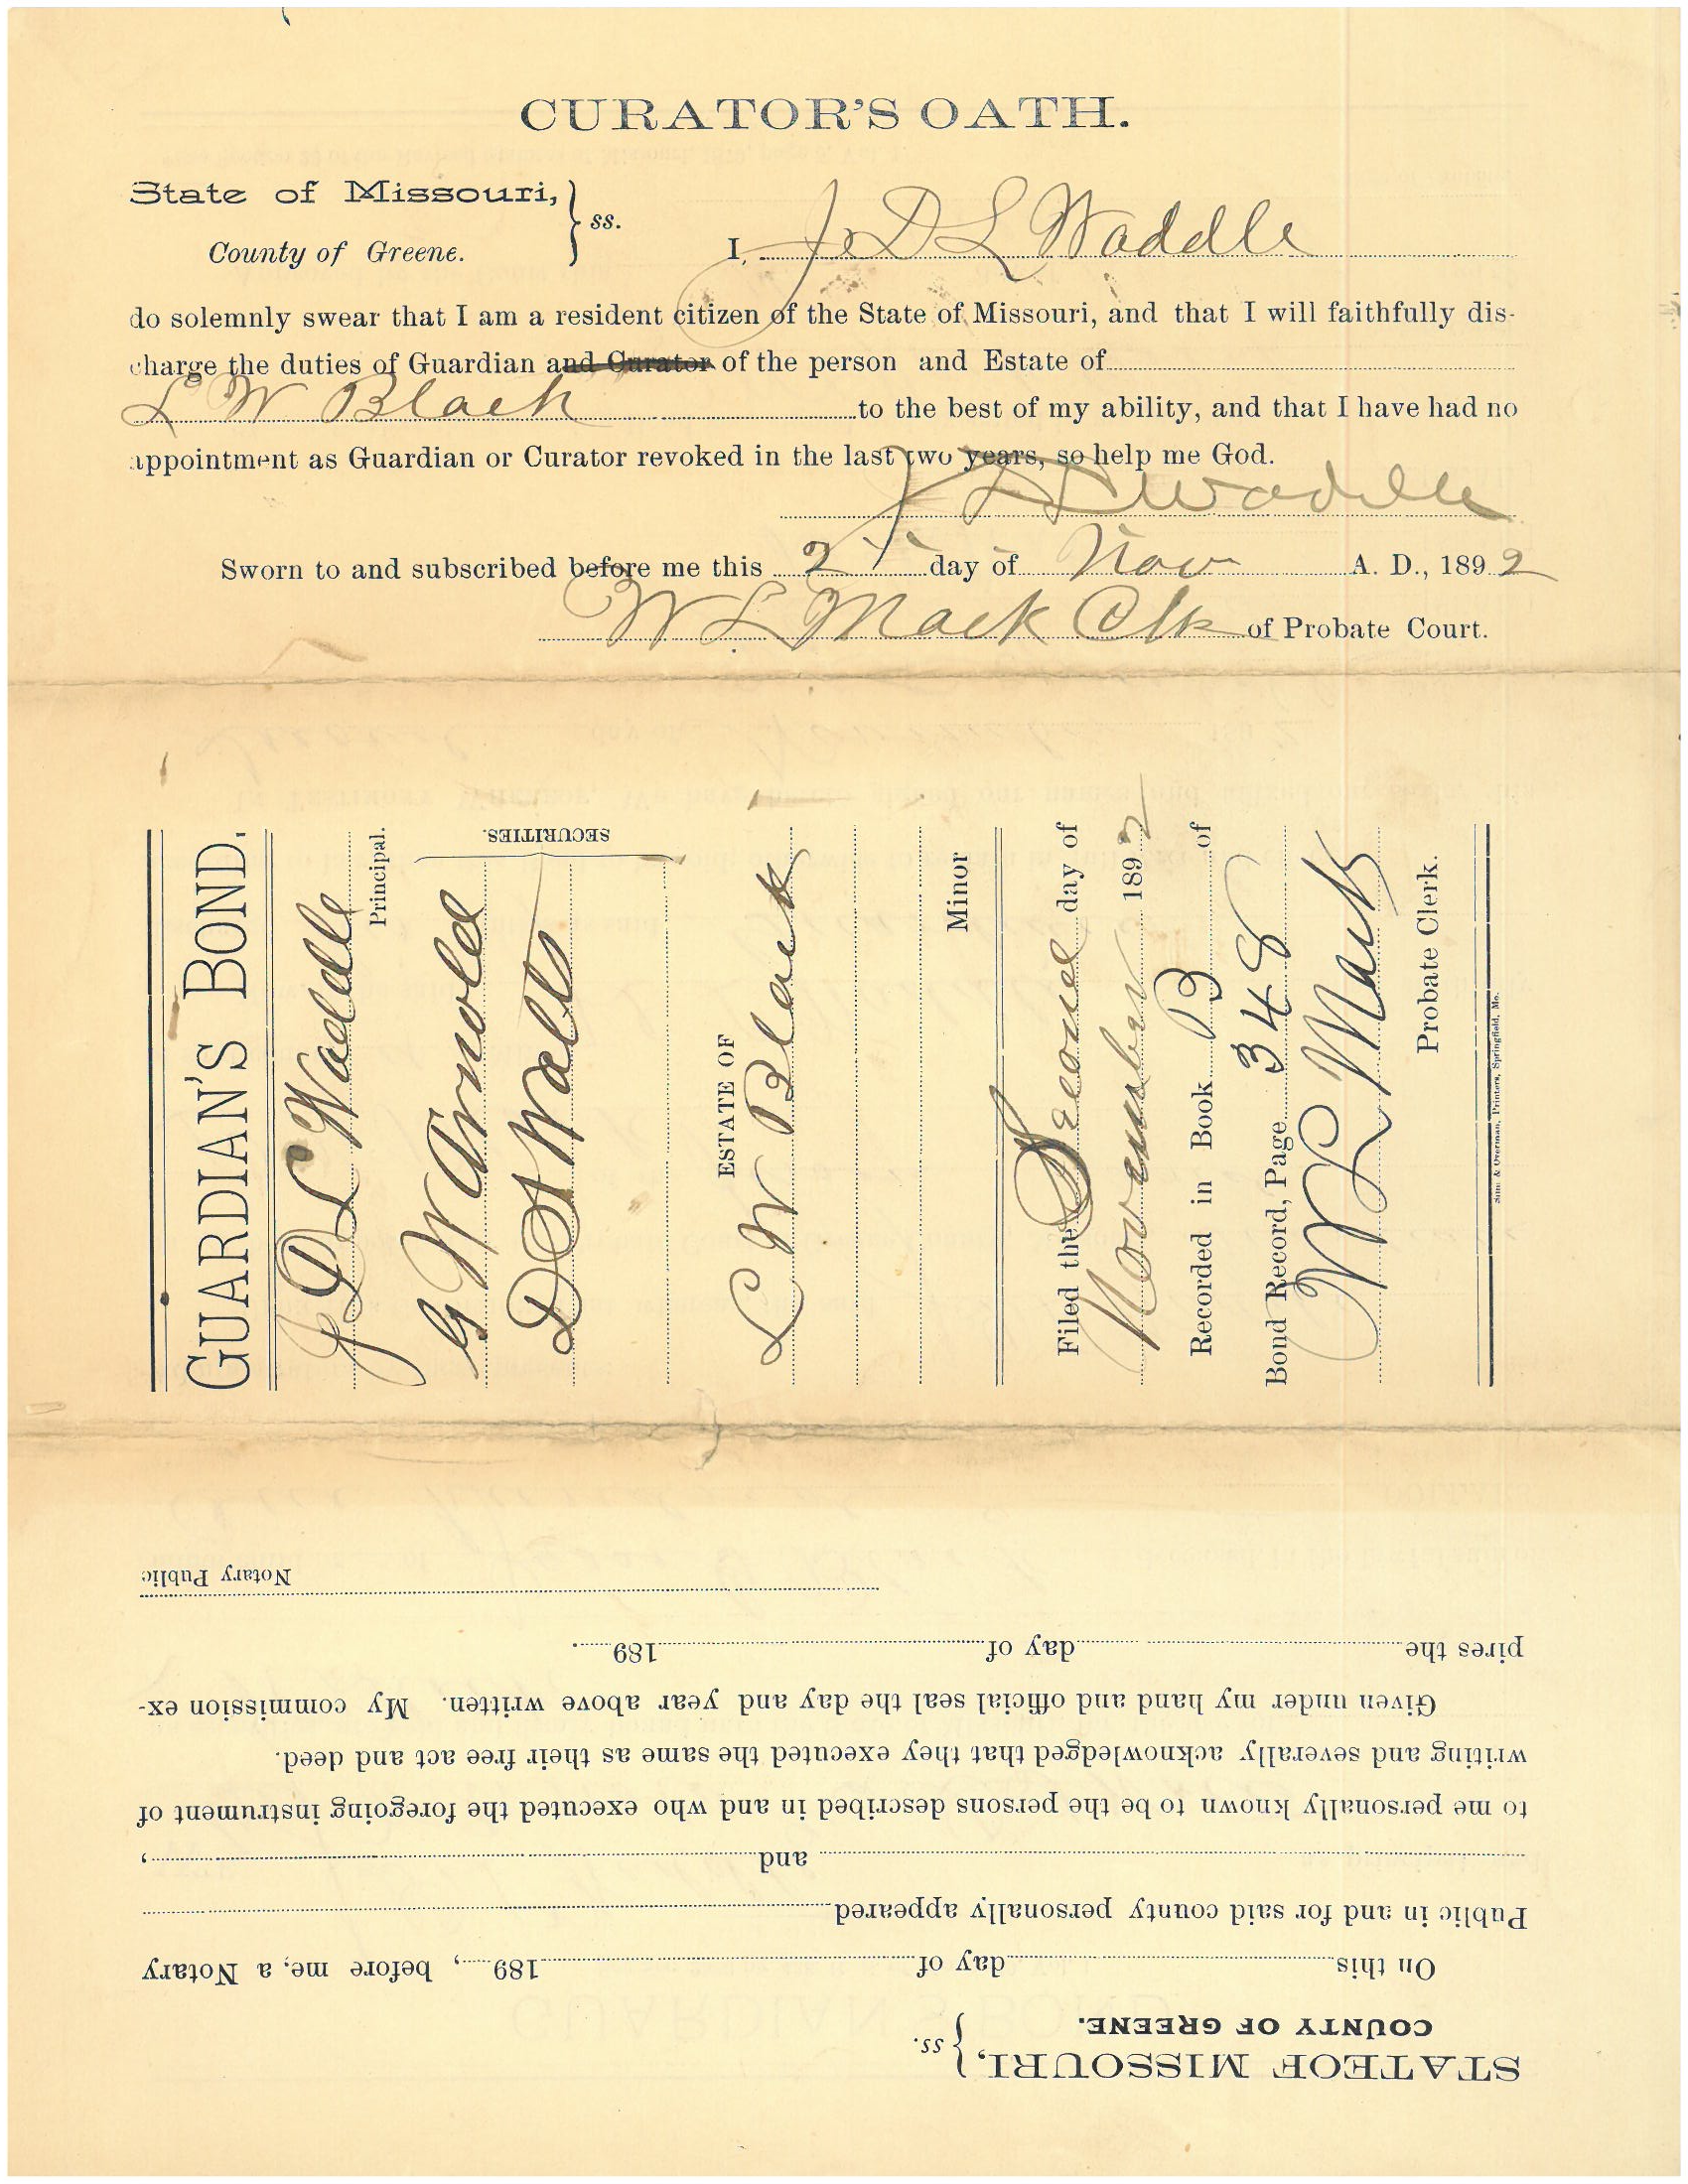 CURATOR'S OATH.
State of Missouri, } ss.
County of Greene.
I, J D L Waddle
do solemnly swear that I am a resident citizen of the State of Missouri, and that I will faithfully dis-
charge the duties of Guardian and Curator of the person and Estate of
L W Black to the best of my ability, and that I have had no
appointment as Guardian or Curator revoked in the last two years, so help me God.
J D L Waddle
Sworn to and subscribed before me this 2 day of Nov A. D., 1892
W L Mack Clk of Probate Court.
GUARDIAN'S BOND.
J D L Waddle
Principal.
G W Arnold
D H Walls
SECURITIES.
ESTATE OF
L W Black
Minor
Filed the Second day of
November 1892
Recorded in Book B of
Bond Record, Page 348
W L Mack
Probate Clerk.
Printers, Springfield, Mo.
STATE OF MISSOURI, } ss.
COUNTY OF GREENE.
On this day of 189 , before me, a Notary
Public in and for said county personally appeared
and ,
to me personally known to be the persons described in and who executed the foregoing instrument of
writing and severally acknowledged that they executed the same as their free act and deed.
Given under my hand and official seal the day and year above written. My commission ex-
pires the day of 189 .
Notary Public